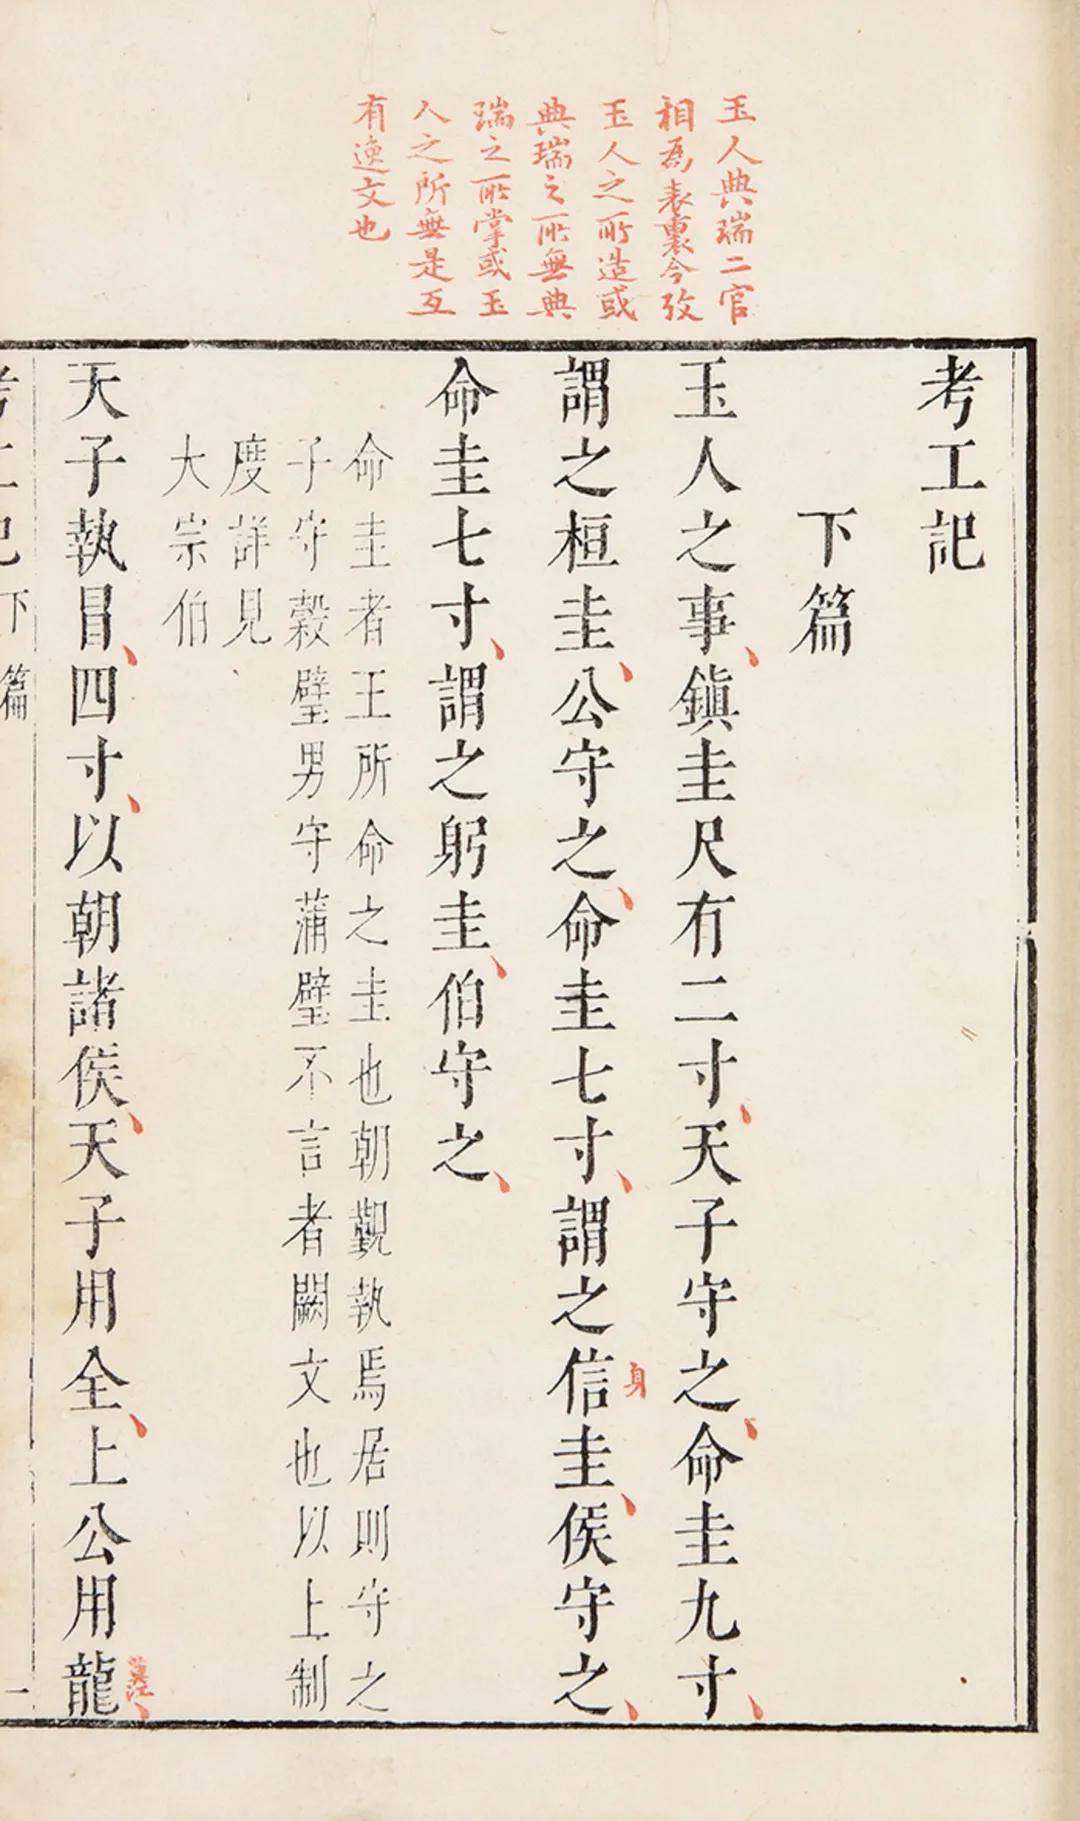 玉人典瑞二官
相為表裏今攷
玉人之所造或
典瑞之所無典
瑞之所掌或玉
人之所無是互
有逸文也
考工記
下篇
玉人之事鎮圭尺有二寸天子守之命圭九寸
謂之桓圭公守之命圭七寸謂之信圭侯守之
身
命圭七寸謂之躬圭伯守之
命圭者王所命之圭也朝覲執焉居則守之
子守穀璧男守蒲璧不言者闕文也以上制
度詳見
大宗伯
天子執冒四寸以朝諸侯天子用全上公用龍
莫江
考工記下篇 一